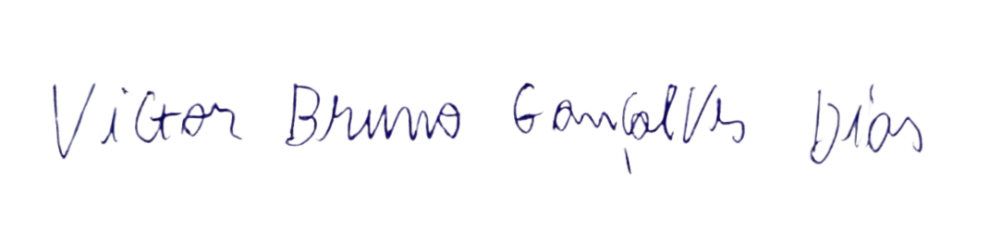 Victor Bruno Gonçalves Dias